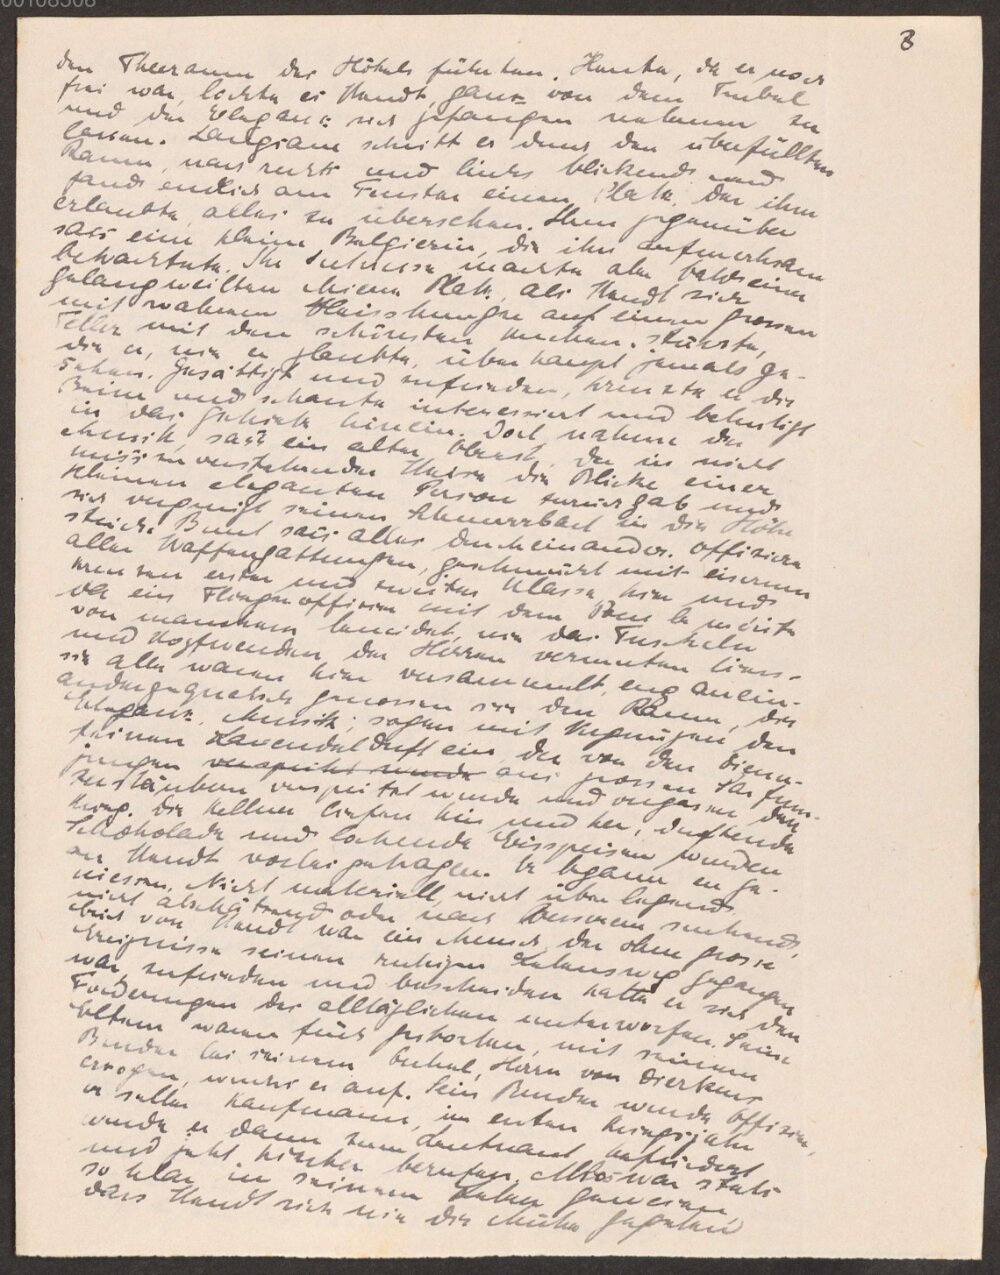 00108508
8
den Theeraum des Hôtels führten. Heute, da er noch
frei war, lockte es Handt, ganz von dem Trubel
und der Eleganz sich gefangen nehmen zu
lassen. Langsam schritt er durch den überfüllten
Raum, nach rechts und links blickend und
fand endlich am Fenster einen Platz, der ihm
erlaubte, alles zu übersehen. Ihm gegenüber
sass eine kleine Belgierin, die ihn aufmerksam
betrachtete. Ihr Interesse machte aber bald einer
gelangweilten Miene Platz, als Handt sich
mit wahrem Heisshunger auf einen grossen
Teller mit den schönsten Kuchen stürzte,
die er, wie er glaubte, überhaupt jemals ge-
sehen. Gesättigt und zufrieden, kreuzte er die
Beine und schaute interessiert und belustigt
in das Getriebe hinein. Dort, nahe der
Musik, sass ein alter Oberst, der in nicht
misszuverstehender Weise die Blicke einer
kleinen eleganten Person zurückgab und
sich vergnügt seinen Schnurrbart in die Höhe
strich. Bunt sass alles durcheinander. Offiziere
aller Waffengattungen, geschmückt mit eisernen
Kreuzen erster und zweiter Klasse, hier und
da ein Fliegeroffizier mit dem Pour le mérite
von manchem beneidet, wie das Tuscheln
und Kopfwenden der Herren vermuten liess.-
sie alle waren hier versammelt, eng anein-
andergequetscht genossen sie den Raum, die
Eleganz, Musik; sogen mit Vergnügen den
feinen Lavendelduft ein, der von den Dienst-
jungen verspritzt wurde aus grossen Parfum-
zerstäubern verspritzt wurde und vergassen den
Krieg. Die Kellner liefen hin und her, duftende
Schokolade und lockende Eisspeisen wurden
an Handt vorbei getragen. Er begann zu ge-
niessen. Nicht materiell, nicht überlegend,
nicht abschätzend oder nach Besserem suchend.
von Handt war ein Mensch, der ohne grosse
Ereignisse seinen ruhigen Lebensweg gegangen
war, zufrieden und bescheiden hatte er sich den
Forderungen des alltäglichen unterworfen. Seine
Eltern waren früh gestorben, mit seinem
Bruder bei seinem Onkel, Herrn von Dierkens
erzogen, wuchs er auf. Sein Bruder wurde Offizier,
er selber Kaufmann, im ersten Kriegsjahr
wurde er dann zum Leutnant befördert
und jetzt hierher berufen. Alles war stets
so klar in seinem Leben gewesen,
dass Handt sich nie die Mühe gegeben